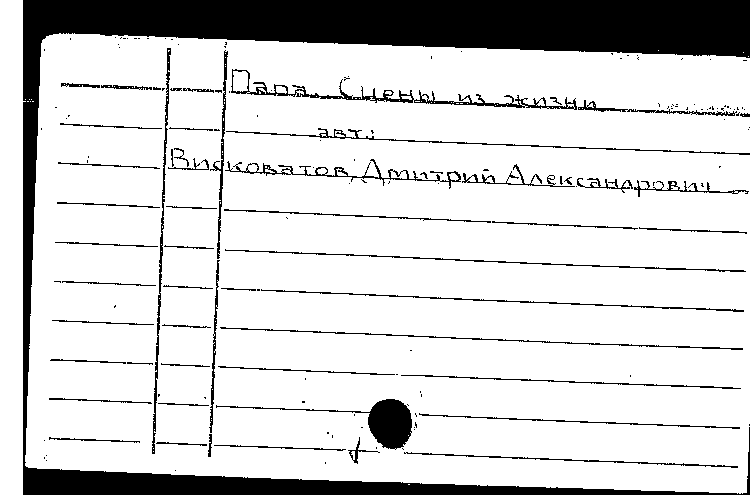 Папа. Сцены из жизни
авт.:
Висковатов, Дмитрий Александрович